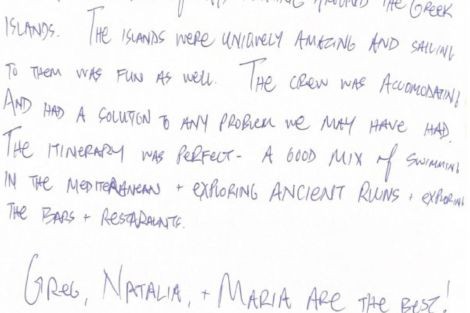 AROUND THE GREEK
ISLANDS. THE ISLANDS WERE UNIQUELY AMAZING AND SAILING
TO THEM WAS FUN AS WELL. THE CREW WAS ACCOMODATING
AND HAD A SOLUTION TO ANY PROBLEM WE MAY HAVE HAD.
THE ITINERARY WAS PERFECT - A GOOD MIX OF SWIMMING
IN THE MEDITERANEAN + EXPLORING ANCIENT RUINS + EXPLORING
THE BARS + RESTARAUNTS.
GREG, NATALIA, + MARIA ARE THE BEST!